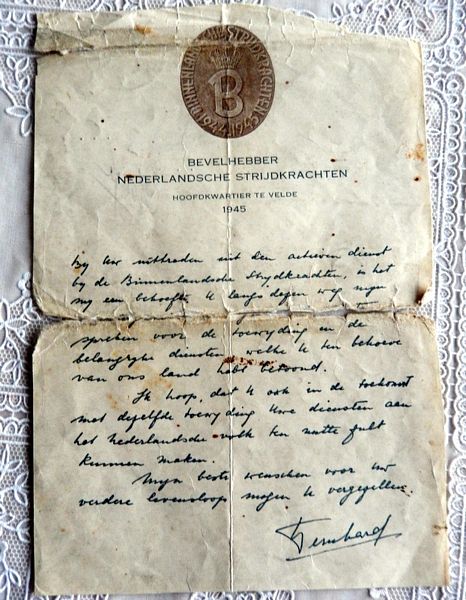 BINNENLANDSCHE STRIJDKRACHTEN
B
1944-1945
BEVELHEBBER
NEDERLANDSCHE STRIJDKRACHTEN
HOOFDKWARTIER TE VELDE
1945
bij Uw uittreden uit den actieven dienst
bij de Binnenlandsche Strijdkrachten, is het
mij een behoefte U langs dezen weg mijn
spreken voor de toewijding en de
belangrijke diensten welke U ten behoeve
van ons land hebt betoond.
Ik hoop, dat U ook in de toekomst
met dezelfde toewijding Uwe diensten aan
het Nederlandsche volk ten nutte zult
kunnen maken.
Mijn beste wenschen voor Uw
verdere levensloop mogen U vergezellen.
Bernhard